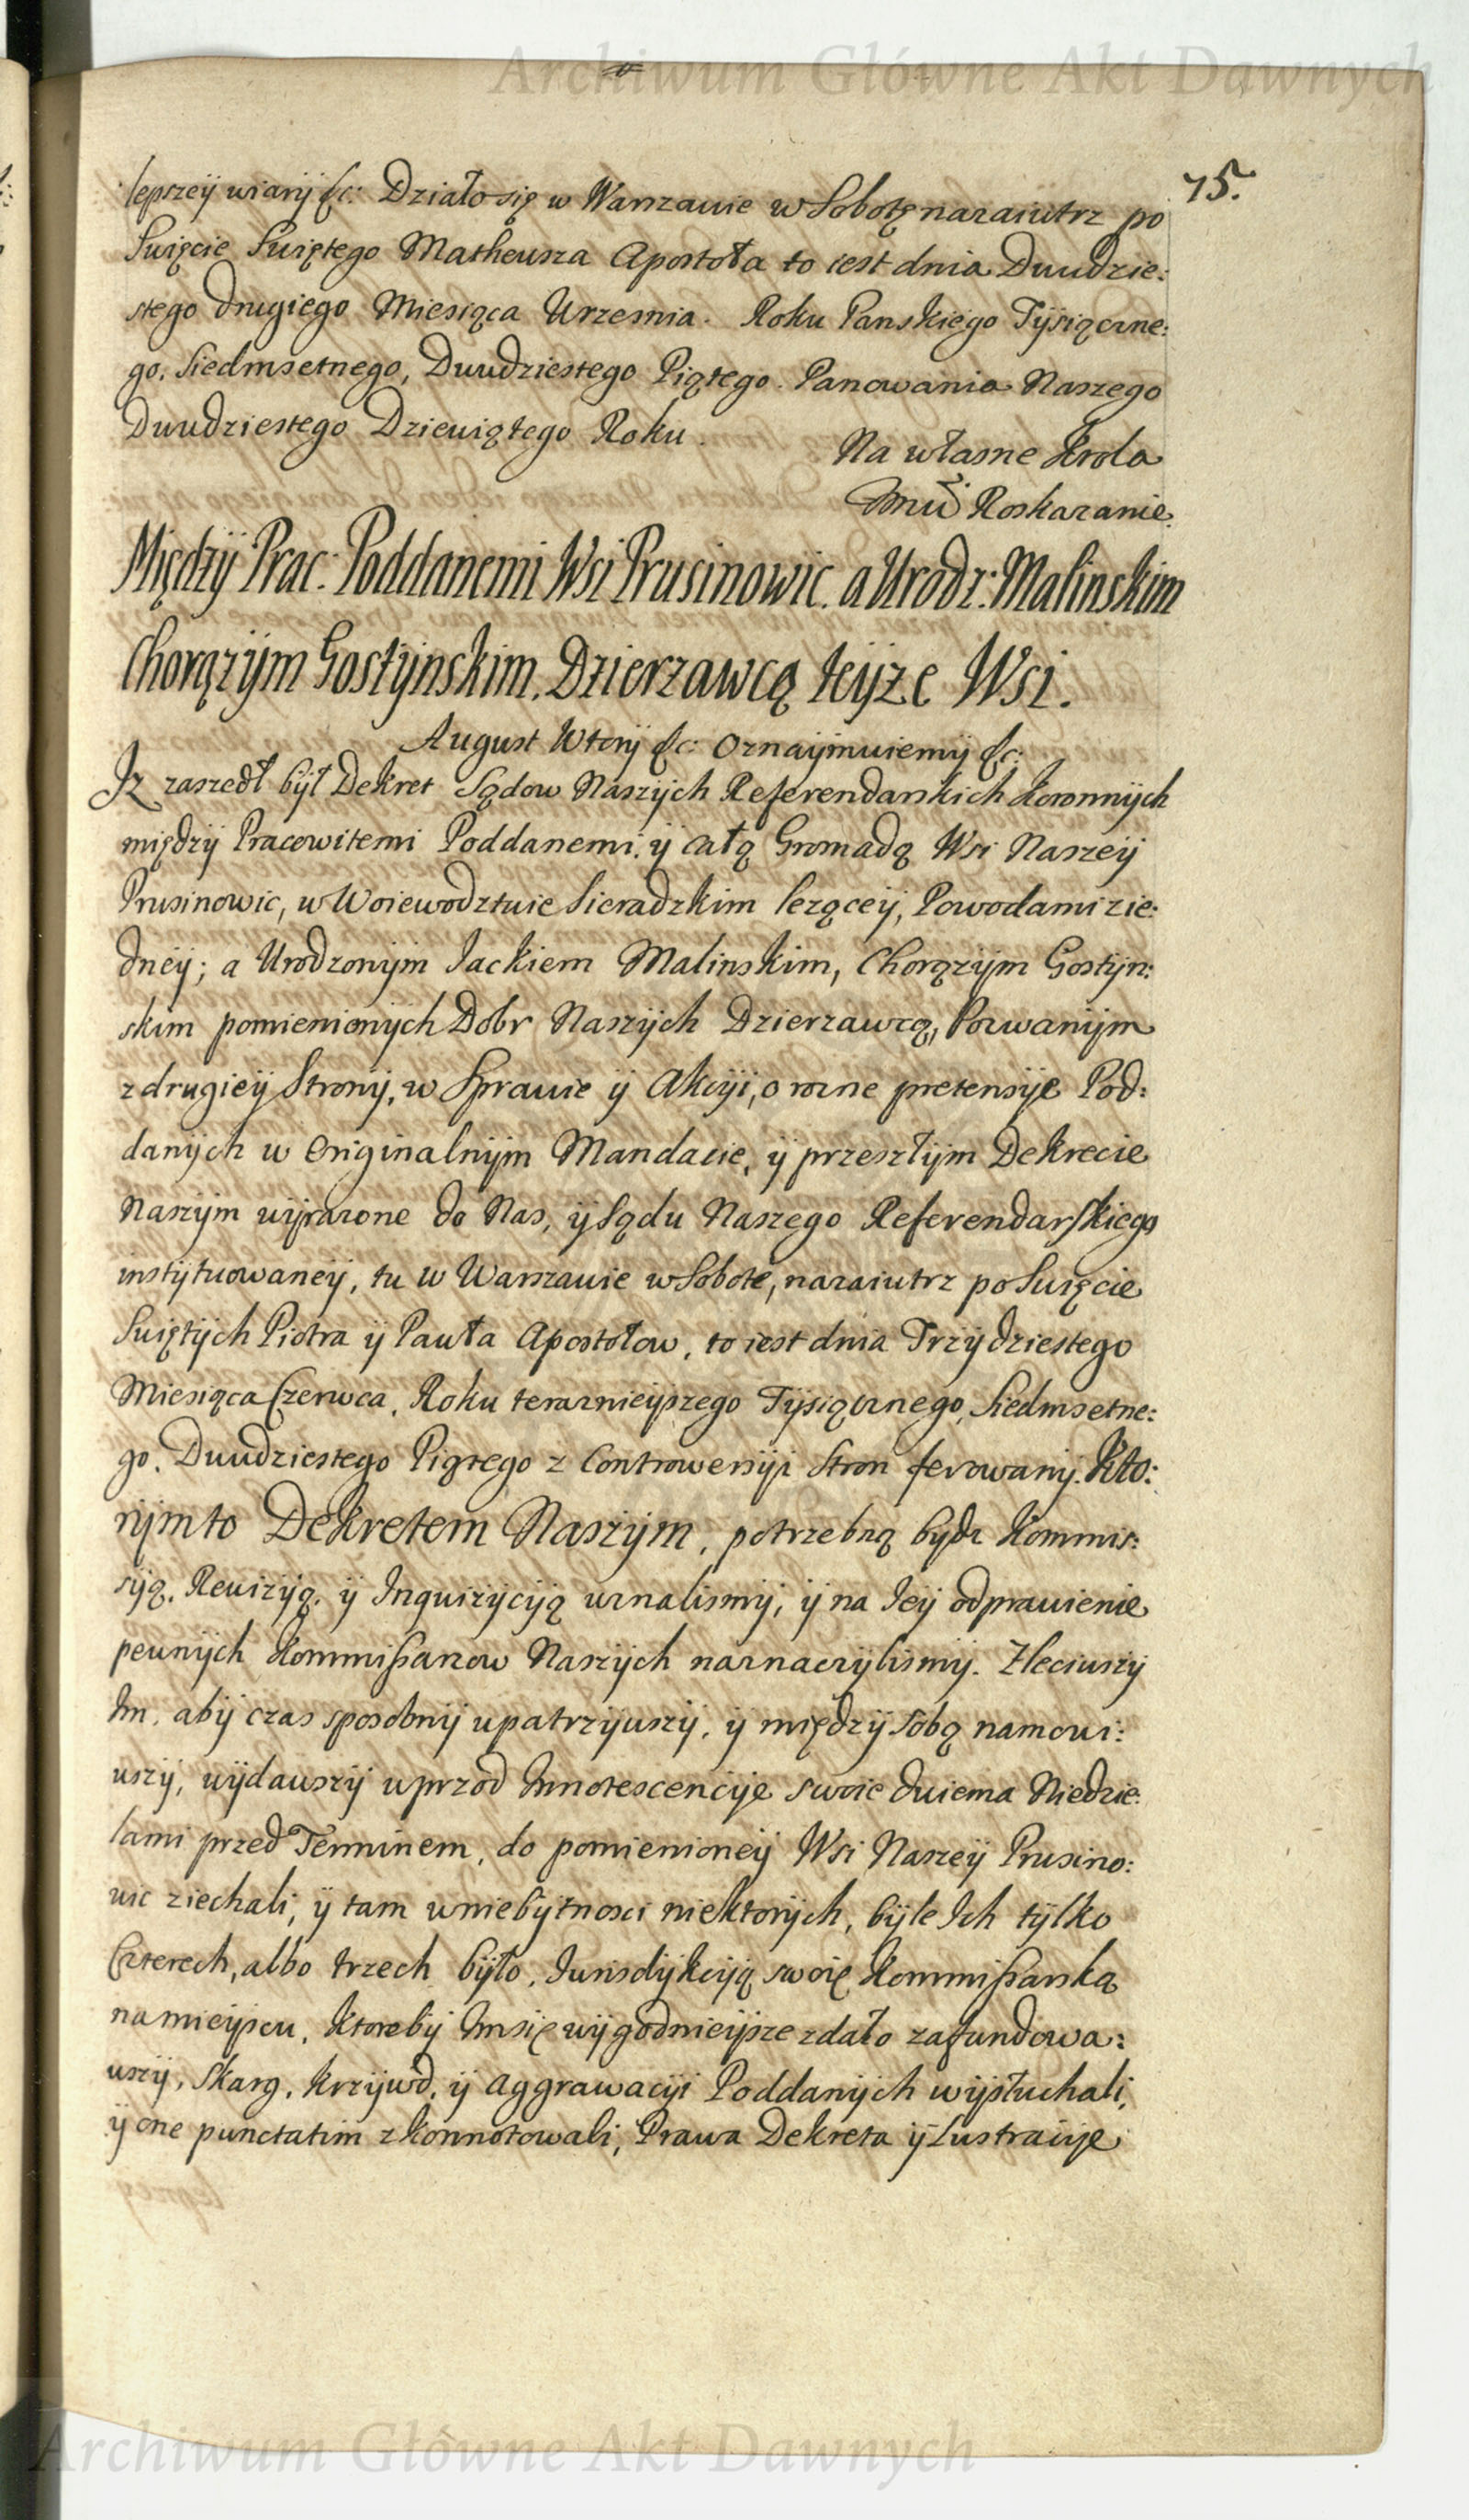 Archiwum Główne Akt Dawnych
75.
lepszeÿ wiarÿ &c: Działo się w Warszawie w Sobotę nazaiutrz po
Swięcie Swiętego Matheusza Apostoła to iest dnia Dwudzie:
stego drugiego Miesiąca Wrzesnia. Roku Panskiego Tÿsiączne:
go, Siedmsetnego, Dwudziestego Piątego. Panowania Naszego
Dwudziestego Dziewiątego Roku.
Na własne Krola
Roskazanie.
Międzÿ Prac: Poddanemi Wsi Prusinowic. a Urodz: Malinskim
Chorązÿm Gostÿnskim, Dzierzawcą teÿze Wsi.
August Wtorÿ &c: Oznaÿmuiemÿ &c:
Iz zaszedł bÿł Dekret Sądow Naszÿch Referendarskich Koronnÿch
międzÿ Pracowitemi Poddanemi, ÿ całą Gromadą Wsi Naszeÿ
Prusinowic, w Woiewodztwie Sieradzkim leząceÿ, Powodami zie:
dneÿ; a Urodzonÿm Jackiem Malinskim, Chorązÿm Gostÿn:
skim pomienionÿch Dobr Naszÿch Dzierzawcą, Pozwanÿm
z drugieÿ Stronÿ, w Sprawie ÿ Akcÿi, o rozne pretensÿe Pod:
danÿch w Originalnÿm Mandacie, ÿ przeszłÿm Dekrecie
Naszÿm wÿrazone do Nas, ÿ Sądu Naszego Referendarskiego
instÿtuowaneÿ, tu w Warszawie w Sobote, nazaiutrz po Swięcie
Swiętÿch Piotra ÿ Pawła Apostołow, to iest dnia Trzÿdziestego
Miesiąca Czerwca, Roku teraznieÿszego Tÿsiącznego, Siedmsetne:
go, Dwudziestego Piątego z Controwersÿi Stron ferowanÿ. Kto:
rÿm to Dekretem Naszÿm, potrzebną bÿdz Kommis:
sÿą, Rewizÿą, ÿ Inquizÿcÿą uznalismÿ, ÿ na Ieÿ odprawienie
pewnÿch Kommissarzow Naszÿch naznaczÿlismÿ. Zleciwszÿ
Im, abÿ czas sposobnÿ upatrzÿwszÿ, ÿ międzÿ sobą namowi:
wszÿ, wÿdawszÿ wprzod Innotescencÿe swoie dwiema Niedzie:
lami przed Terminem, do pomienioneÿ Wsi Naszeÿ Prusino:
wic ziechali, ÿ tam w niebÿtnosci niektorÿch, bÿle Ich tÿlko
Czterech, albo trzech bÿło, Iurisdÿkcÿą swoię Kommissarską
na mieÿscu, ktorebÿ Im się wÿgodnieÿsze zdało zafundowa:
wszÿ, Skarg, krzÿwd, ÿ aggrawacÿi Poddanÿch wÿsłuchali,
ÿ one punctatim zkonnotowali, Prawa Dekreta ÿ Lustracÿe
Archiwum Główne Akt Dawnych